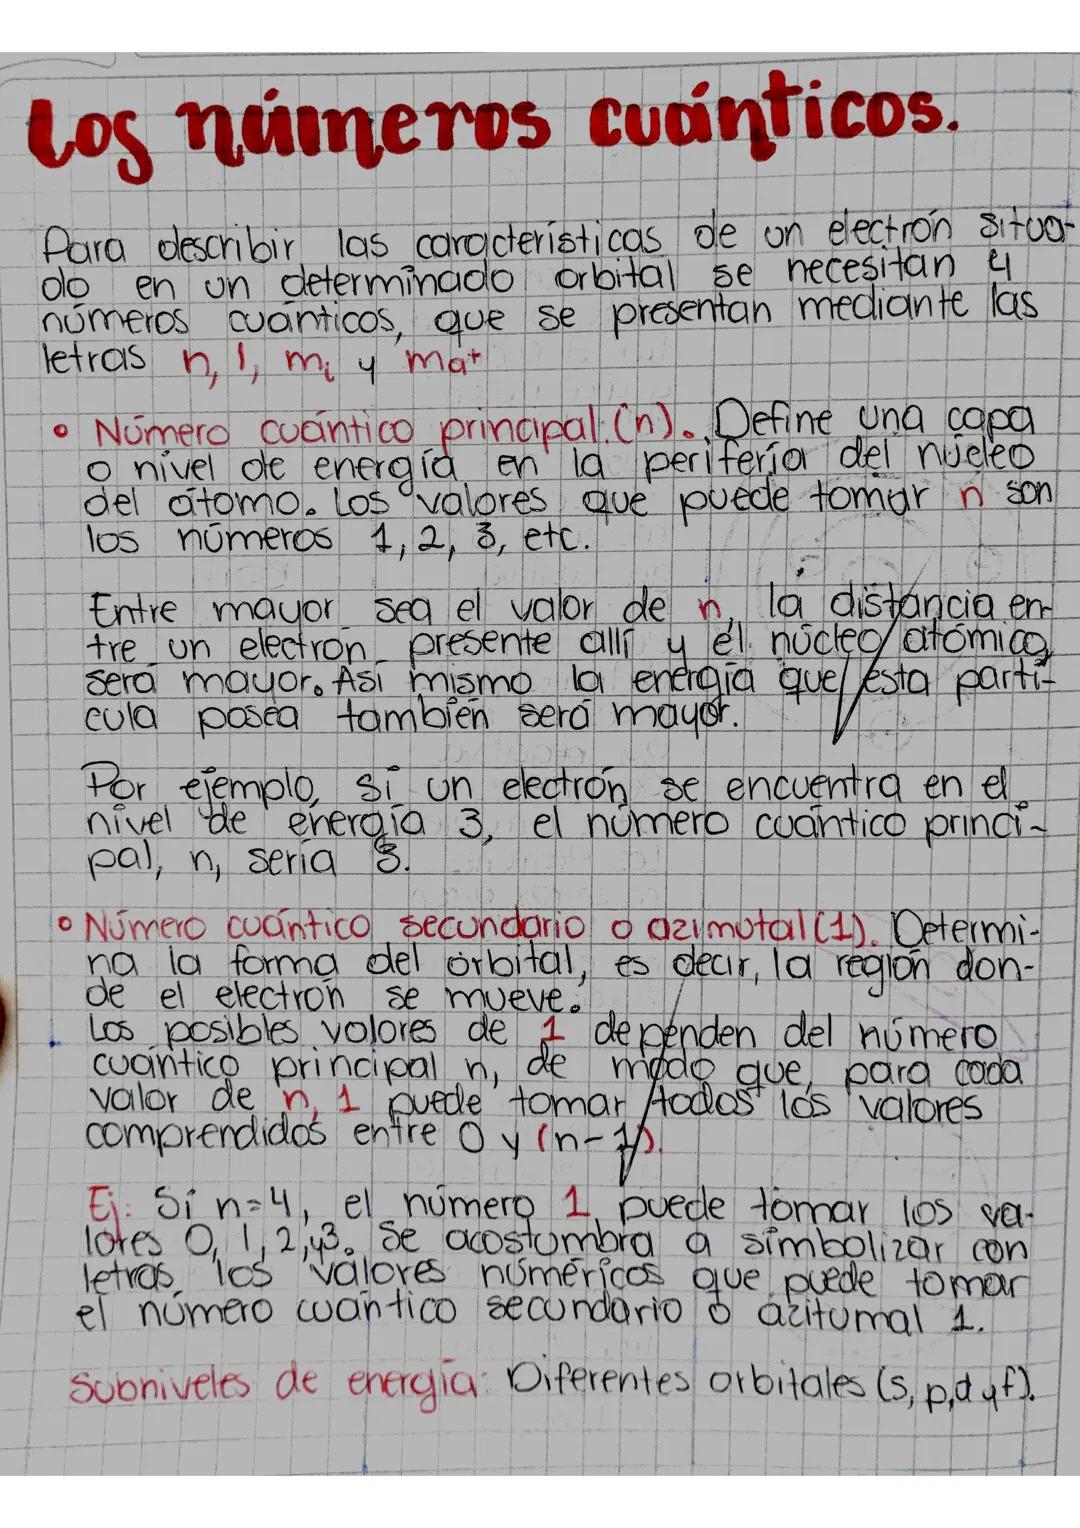 Los números cuánticos.
Para describir las características de un electrón situa-
do en un determinado orbital se necesitan 4
números cuánticos, que se presentan mediante las
letras n, l, mi y mat
• Número cuántico principal (n). Define una capa
o nivel de energía en la periferia del núcleo
del átomo. Los valores que puede tomar n son
los números 1, 2, 3, etc.
Entre mayor sea el valor de n, la distancia en-
tre un electron presente allí y el núcleo atómico,
será mayor. Así mismo la energía que esta partí-
cula posea también será mayor.
Por ejemplo, si un electrón se encuentra en el
nivel de energía 3, el número cuántico princi-
pal, n, sería 3.
• Número cuántico secundario o azimutal (1). Determi-
na la forma del orbital, es decir, la región don-
de el electrón se mueve.
Los posibles valores de 1 dependen del número
cuántico principal n, de modo que, para cada
valor de n, 1 puede tomar todos los valores
comprendidos entre 0 y (n-1).
Ej: Si n=4, el número 1 puede tomar los va-
lores 0, 1, 2, y 3. Se acostumbra a simbolizar con
letras los valores numéricos que puede tomar
el número cuántico secundario o azitumal 1.
Subniveles de energía: Diferentes orbitales (s, p, d y f).